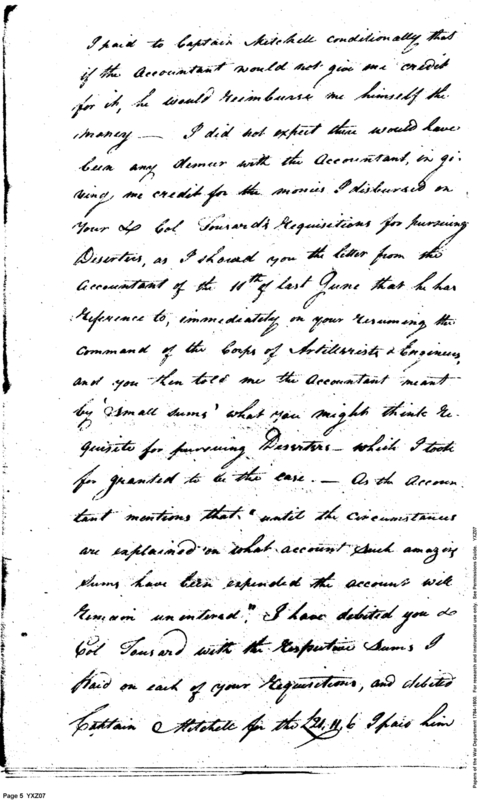 I paid to Captain Mitchell conditionally that
if the Accountant would not give me credit
for it, he would reimburse me himself the
money — I did not expect there would have
been any demur with the Accountant, in gi-
ving me credit for the monies I disbursed on
Your & Col Tousard's requisitions for pursuing
Deserters, as I shewed you the letter from the
Accountant of the 11th of last June that he has
reference to, immediately on your resuming the
Command of the Corps of Artillerists & Engineers,
and you then told me the Accountant meant
by 'small sums' what you might think re-
quisite for pursuing Deserters — which I took
for granted to be the case. — As the Accoun-
tant mentions that "until the circumstances
are explained on what account such amazing
sums have been expended the accounts will
remain unentered," I have debited you &
Col Tousard with the respective sums I
paid on each of your requisitions, and debited
Captain Mitchell for the £21.11.6 I paid him
Page 5 YXZ07
Papers of the War Department 1784-1800. For research and instructional use only. See Permissions Guide. YXZ07